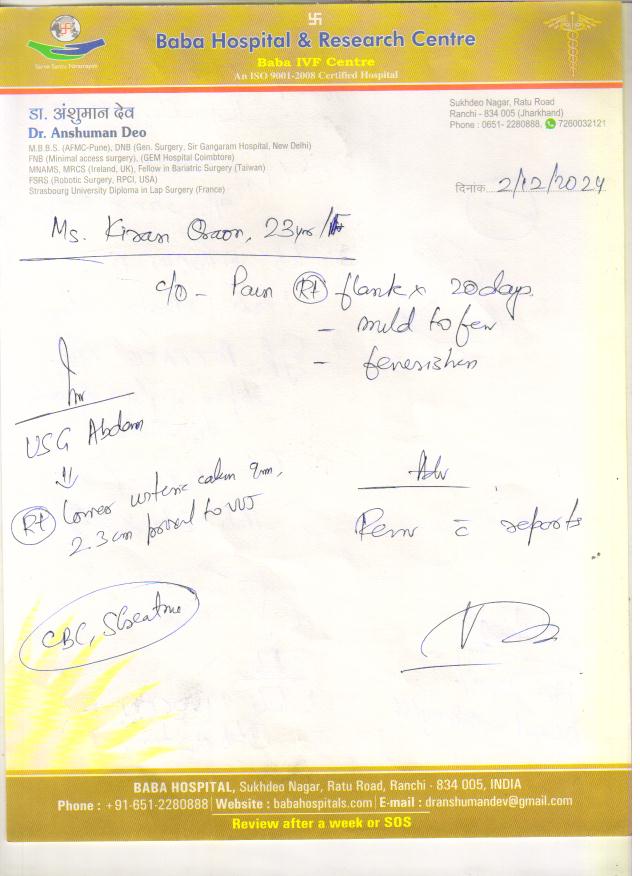 Serve Santu Narayayan
Baba Hospital & Research Centre
Baba IVF Centre
An ISO 9001-2008 Certified Hospital
डा. अंशुमान देव
Dr. Anshuman Deo
M.B.B.S. (AFMC-Pune), DNB (Gen. Surgery, Sir Gangaram Hospital, New Delhi)
FNB (Minimal access surgery), (GEM Hospital Coimbtore)
MNAMS, MRCS (Ireland, UK), Fellow in Bariatric Surgery (Taiwan)
FSRS (Robotic Surgery, RPCI, USA)
Strasbourg University Diploma in Lap Surgery (France)
Sukhdeo Nagar, Ratu Road
Ranchi - 834 005 (Jharkhand)
Phone : 0651- 2280888, 7260032121
दिनांक 2/12/2024
Ms. Kiran Oraon, 23yrs/F
c/o - Pain Rt flank x 20 days
- mild to few
-
Inv
USG Abdom
Rt lower ureteric calcu 9mm,
2.3 cm proximal to VUJ
CBC, S Creatine
Adv
Review c reports
BABA HOSPITAL, Sukhdeo Nagar, Ratu Road, Ranchi - 834 005, INDIA
Phone : +91-651-2280888 | Website : babahospitals.com | E-mail : dranshumandev@gmail.com
Review after a week or SOS